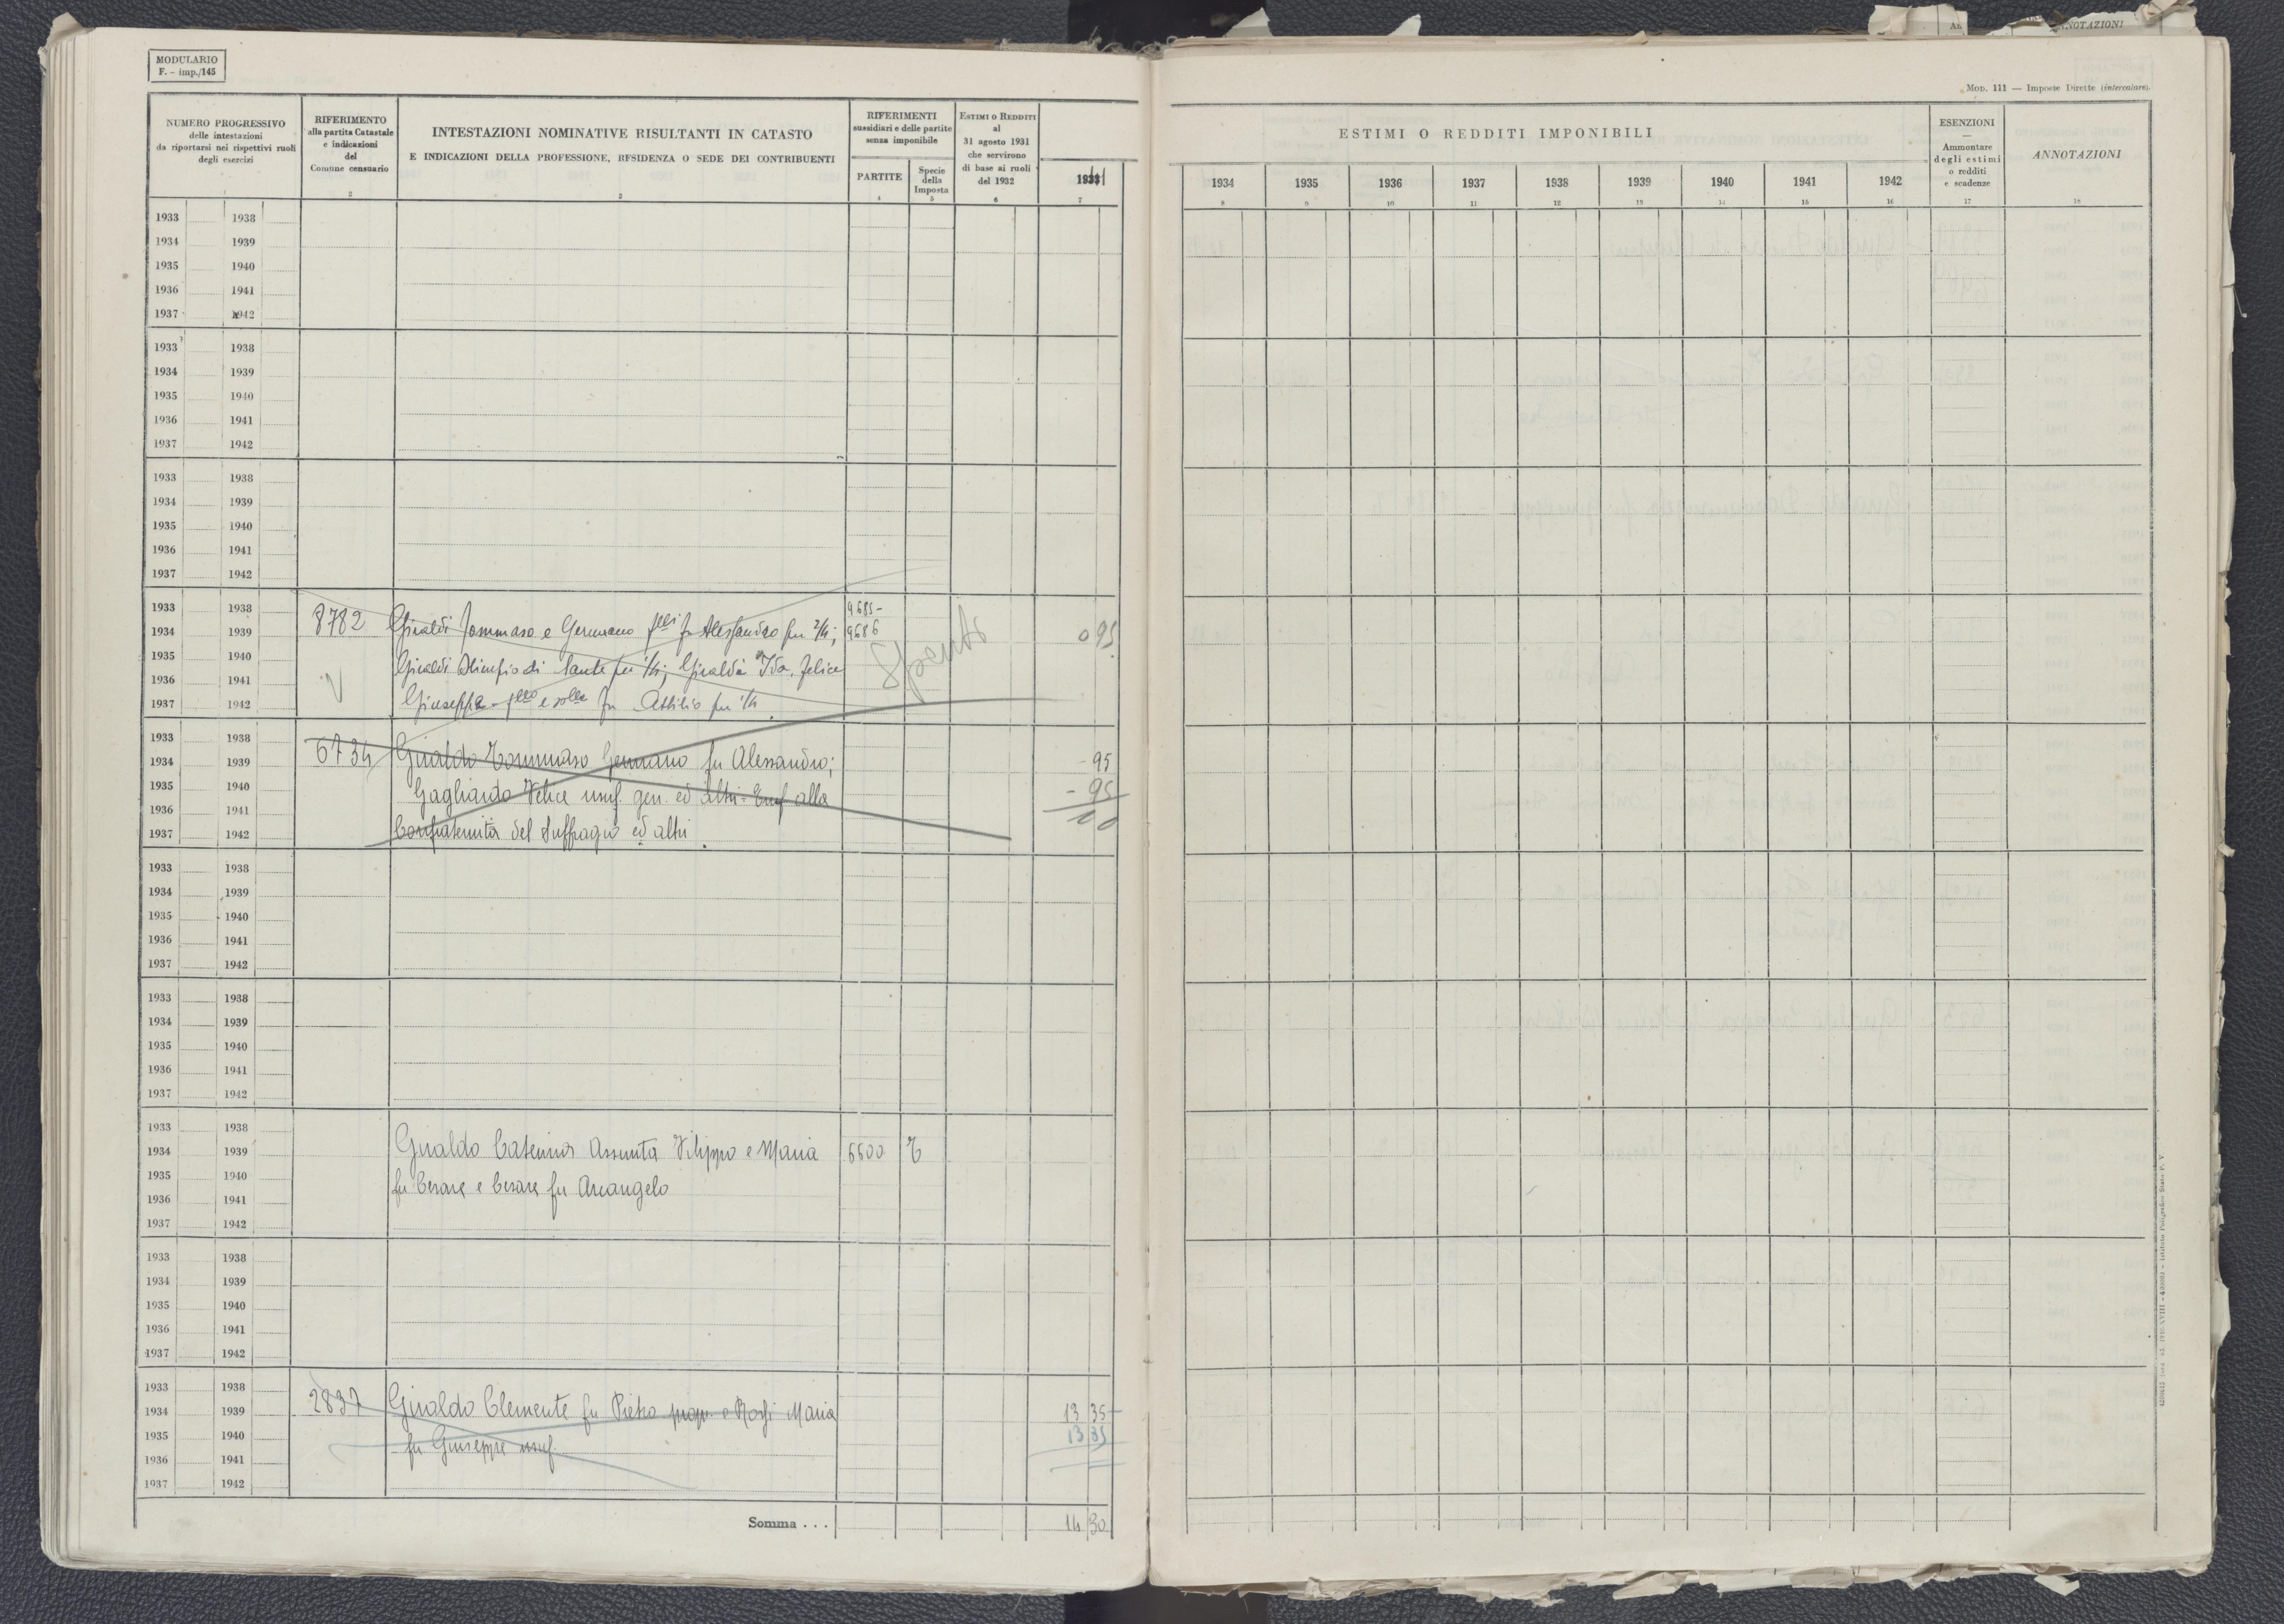 MODULARIO
F. - imp./145
NUMERO PROGRESSIVO
delle intestazioni
da riportarsi nei rispettivi ruoli
degli esercizi
1
RIFERIMENTO
alla partita Catastale
e indicazioni
del
Comune censuario
2
INTESTAZIONI NOMINATIVE RISULTANTI IN CATASTO
E INDICAZIONI DELLA PROFESSIONE, RESIDENZA O SEDE DEI CONTRIBUENTI
3
RIFERIMENTI
sussidiari e delle partite
senza imponibile
PARTITE
4
Specie
della
Imposta
5
ESTIMI O REDDITI
al
31 agosto 1931
che servirono
di base ai ruoli
del 1932
6
7
Mod. 111 — Imposte Dirette (intercalare).
ESTIMI O REDDITI IMPONIBILI
1934 1935 1936 1937 1938 1939 1940 1941 1942
8 9 10 11 12 13 14 15 16
ESENZIONI
—
Ammontare
degli estimi
o redditi
e scadenze
17
ANNOTAZIONI
18
1933 1938
1934 1939
1935 1940
1936 1941
1937 1942
1933 1938
1934 1939
1935 1940
1936 1941
1937 1942
1933 1938
1934 1939
1935 1940
1936 1941
1937 1942
1933 1938 9685-
1934 1939 8782 Giraldi Tommaso e Germano f.lli fu Alessandro per 2/4; 9686 0 95
1935 1940 Giraldi Olimpio di Sante per 1/4; Giraldi Ida, Felice Spento
1936 1941
1937 1942 Giuseppe fu Attilio per 1/4
1933 1938
1934 1939 6734 Giraldo Tommaso Germano fu Alessandro; - 95
1935 1940 Gagliardo Felice usuf. gen. ed altri - Enf alla - 95
1936 1941
1937 1942 Confraternita del Suffragio ed altri
1933 1938
1934 1939
1935 1940
1936 1941
1937 1942
1933 1938
1934 1939
1935 1940
1936 1941
1937 1942
1933 1938
1934 1939 Giraldo Caterina Assunta Filippo e Maria 6600 T
1935 1940 fu Cesare e Cesare fu Arcangelo
1936 1941
1937 1942
1933 1938
1934 1939
1935 1940
1936 1941
1937 1942
1933 1938
1934 1939 2837 Giraldo Clemente fu Pietro propr. e Rossi Maria 13 35
1935 1940 fu Giuseppe usuf. 13 35
1936 1941
1937 1942
Somma . . . 14 30